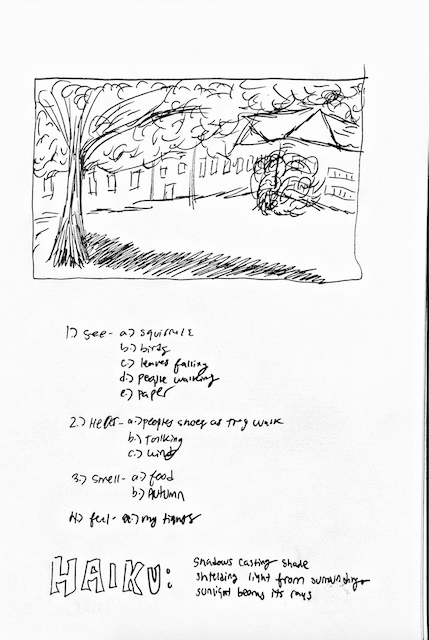 1.) see- a.) squirrels
b.) birds
c.) leaves falling
d.) people walking
e.) paper
2.) Hear- a.) peoples shoes as they walk
b.) Talking
c.) wind
3.) smell- a.) food
b.) Autumn
4.) feel- a.) my
HAIKU:
Shadows casting shade
shielding light from surroundings
sunlight beams its rays